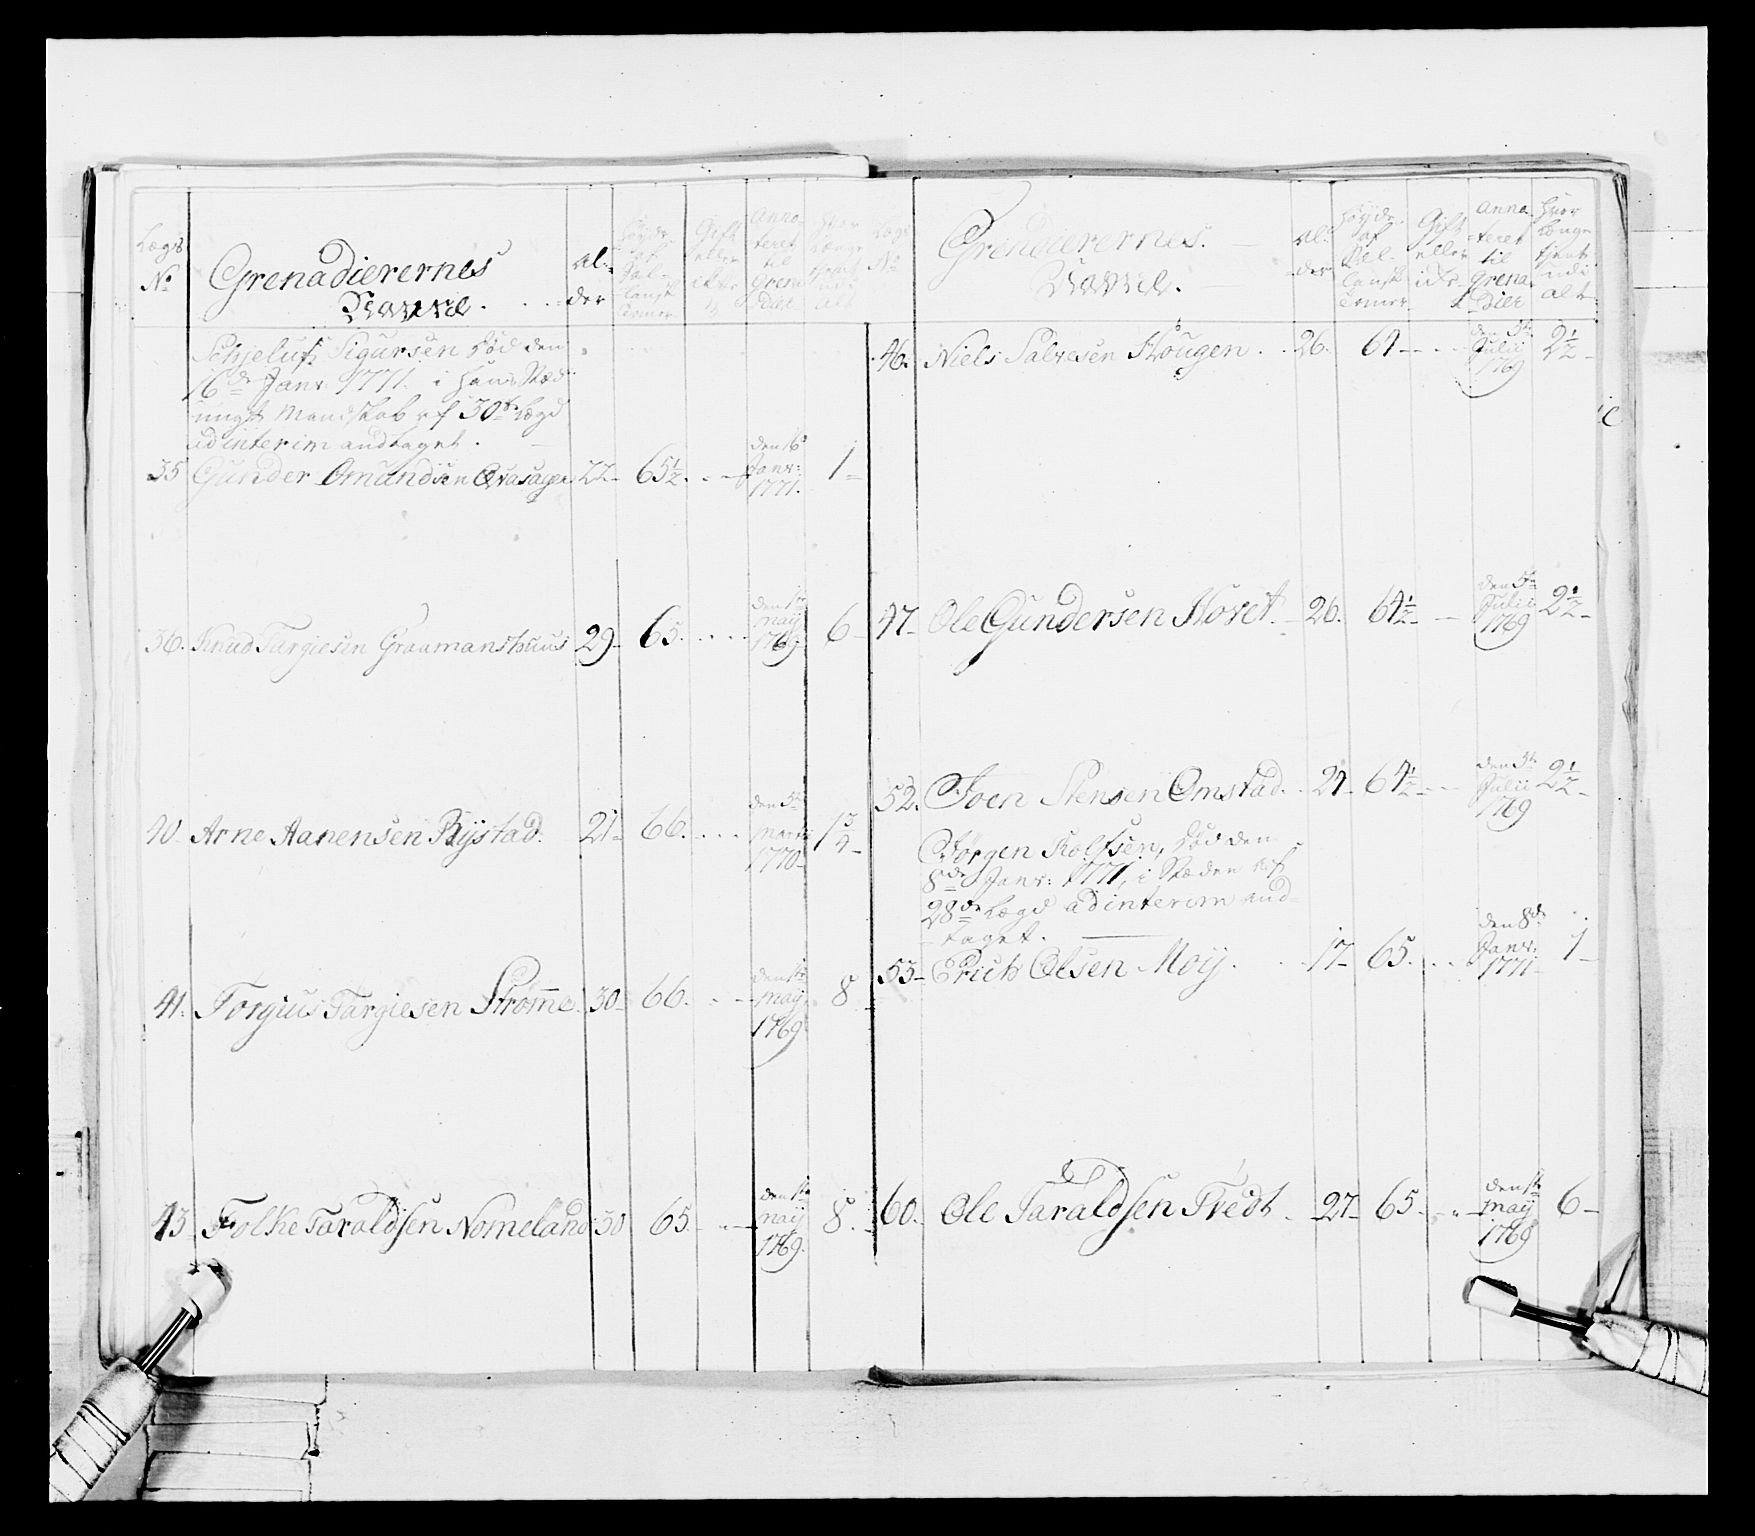 Lægs
No
Grenadierernes
Navne.
Al-
der
Høyde
af
Sal-
Gift
eller
ikke
Anno-
teret
til
Grena
Dier
Hvor
Længe
tjent
udi
Alt
Schjeluf Sigursen død den
16de Janv: 1771. i Hans Stæd
ungt Mandskab af 30te Lægd
ad interim andtaget.
35 Gunder Omundsen 22- 65½. den 16 Janv: 1771. 1-
36. Knud Targiesen 29- 65. den 1te May 1769. 6-
40- Arne Aanensen Rystad. 21- 66. den 5te Marti 1770- 1¾-
41. Torgius Targiesen Strømme. 30- 66. den 1te May 1769 8-
43 Folke Taraldsen Nomeland 30 65- den 1te May 1769. 8-
Lægs
No
Grenadierernes.
Navne.
Al-
der
Høyde
af
Gift
eller
Anno-
teret
til
Grena-
Dier
Hvor
Længe
tjent
udi
Alt
46. Niels Salvesen Hougen. 26. 64- den 5te Julii 1769 2½-
47- Ole Gundersen Hovet- 26. 64½- den 5te Julii 1769 2½-
52. Joen Stensen Omstad. 24- 64½- den 5te Julii 1769 2½-
Jørgen Rolfsen, død den
8de Janv: 1771, i Stæden af
28de Lægd ad interim and-
taget.
53- Erich Olsen Moy. 17- 65. den 8de Janv: 1771 1-
60. Ole Taraldsen Tvedt. 27- 65- den 1te May 1769 6-